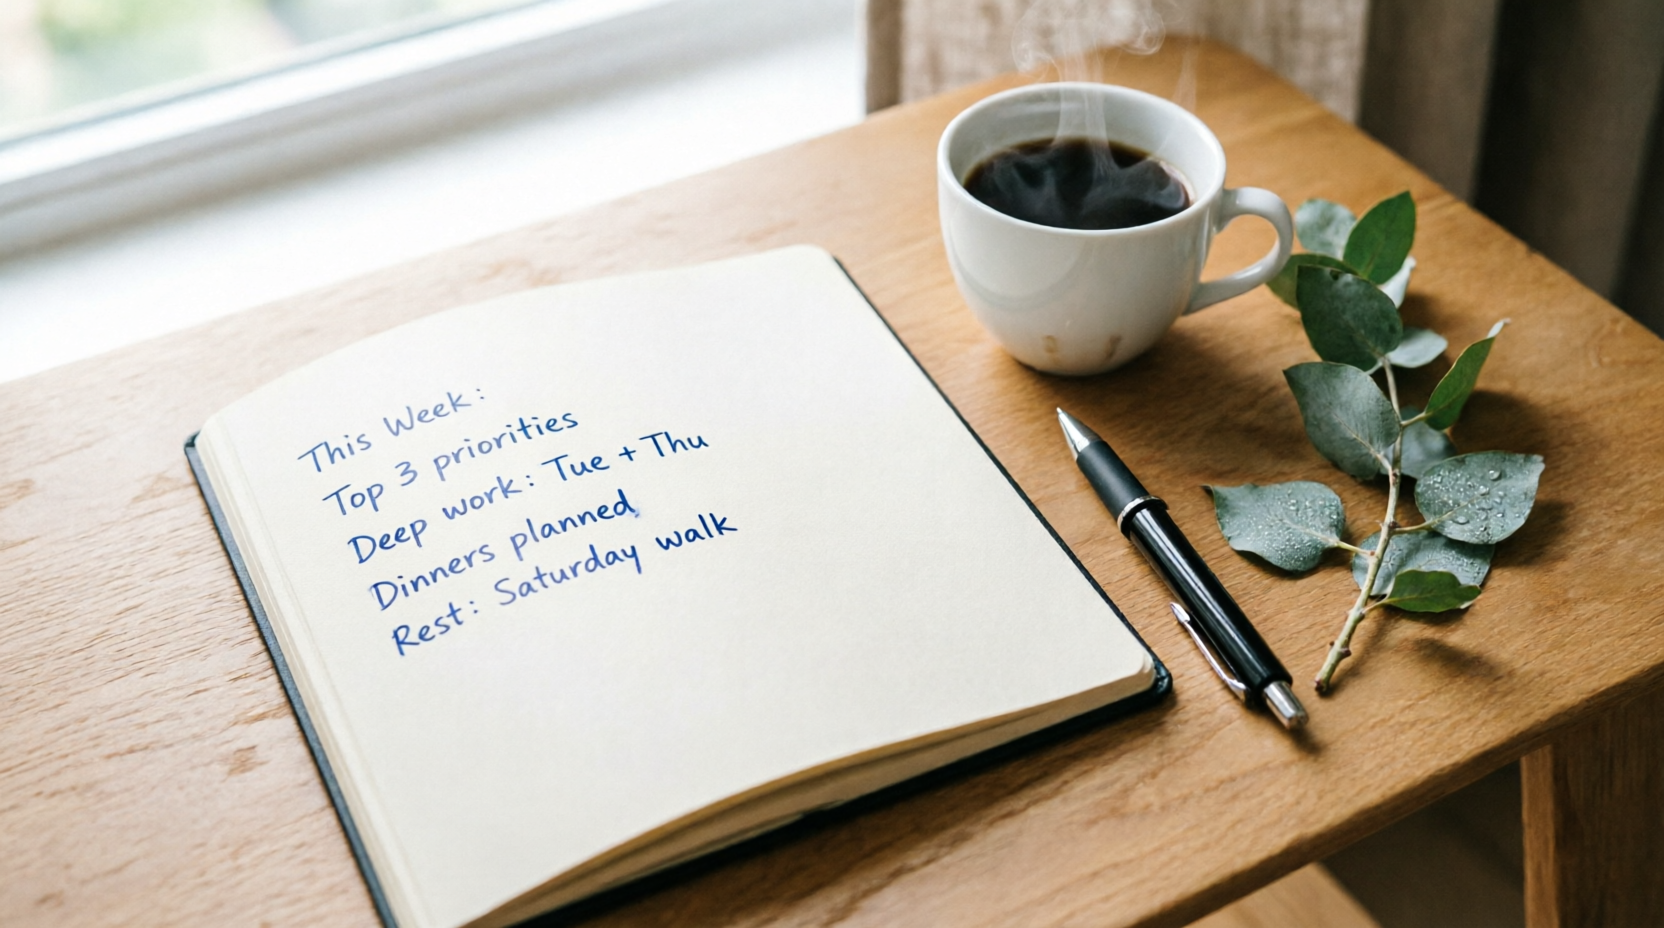 This Week:
Top 3 priorities
Deep work: Tue + Thu
Dinners planned
Rest: Saturday walk